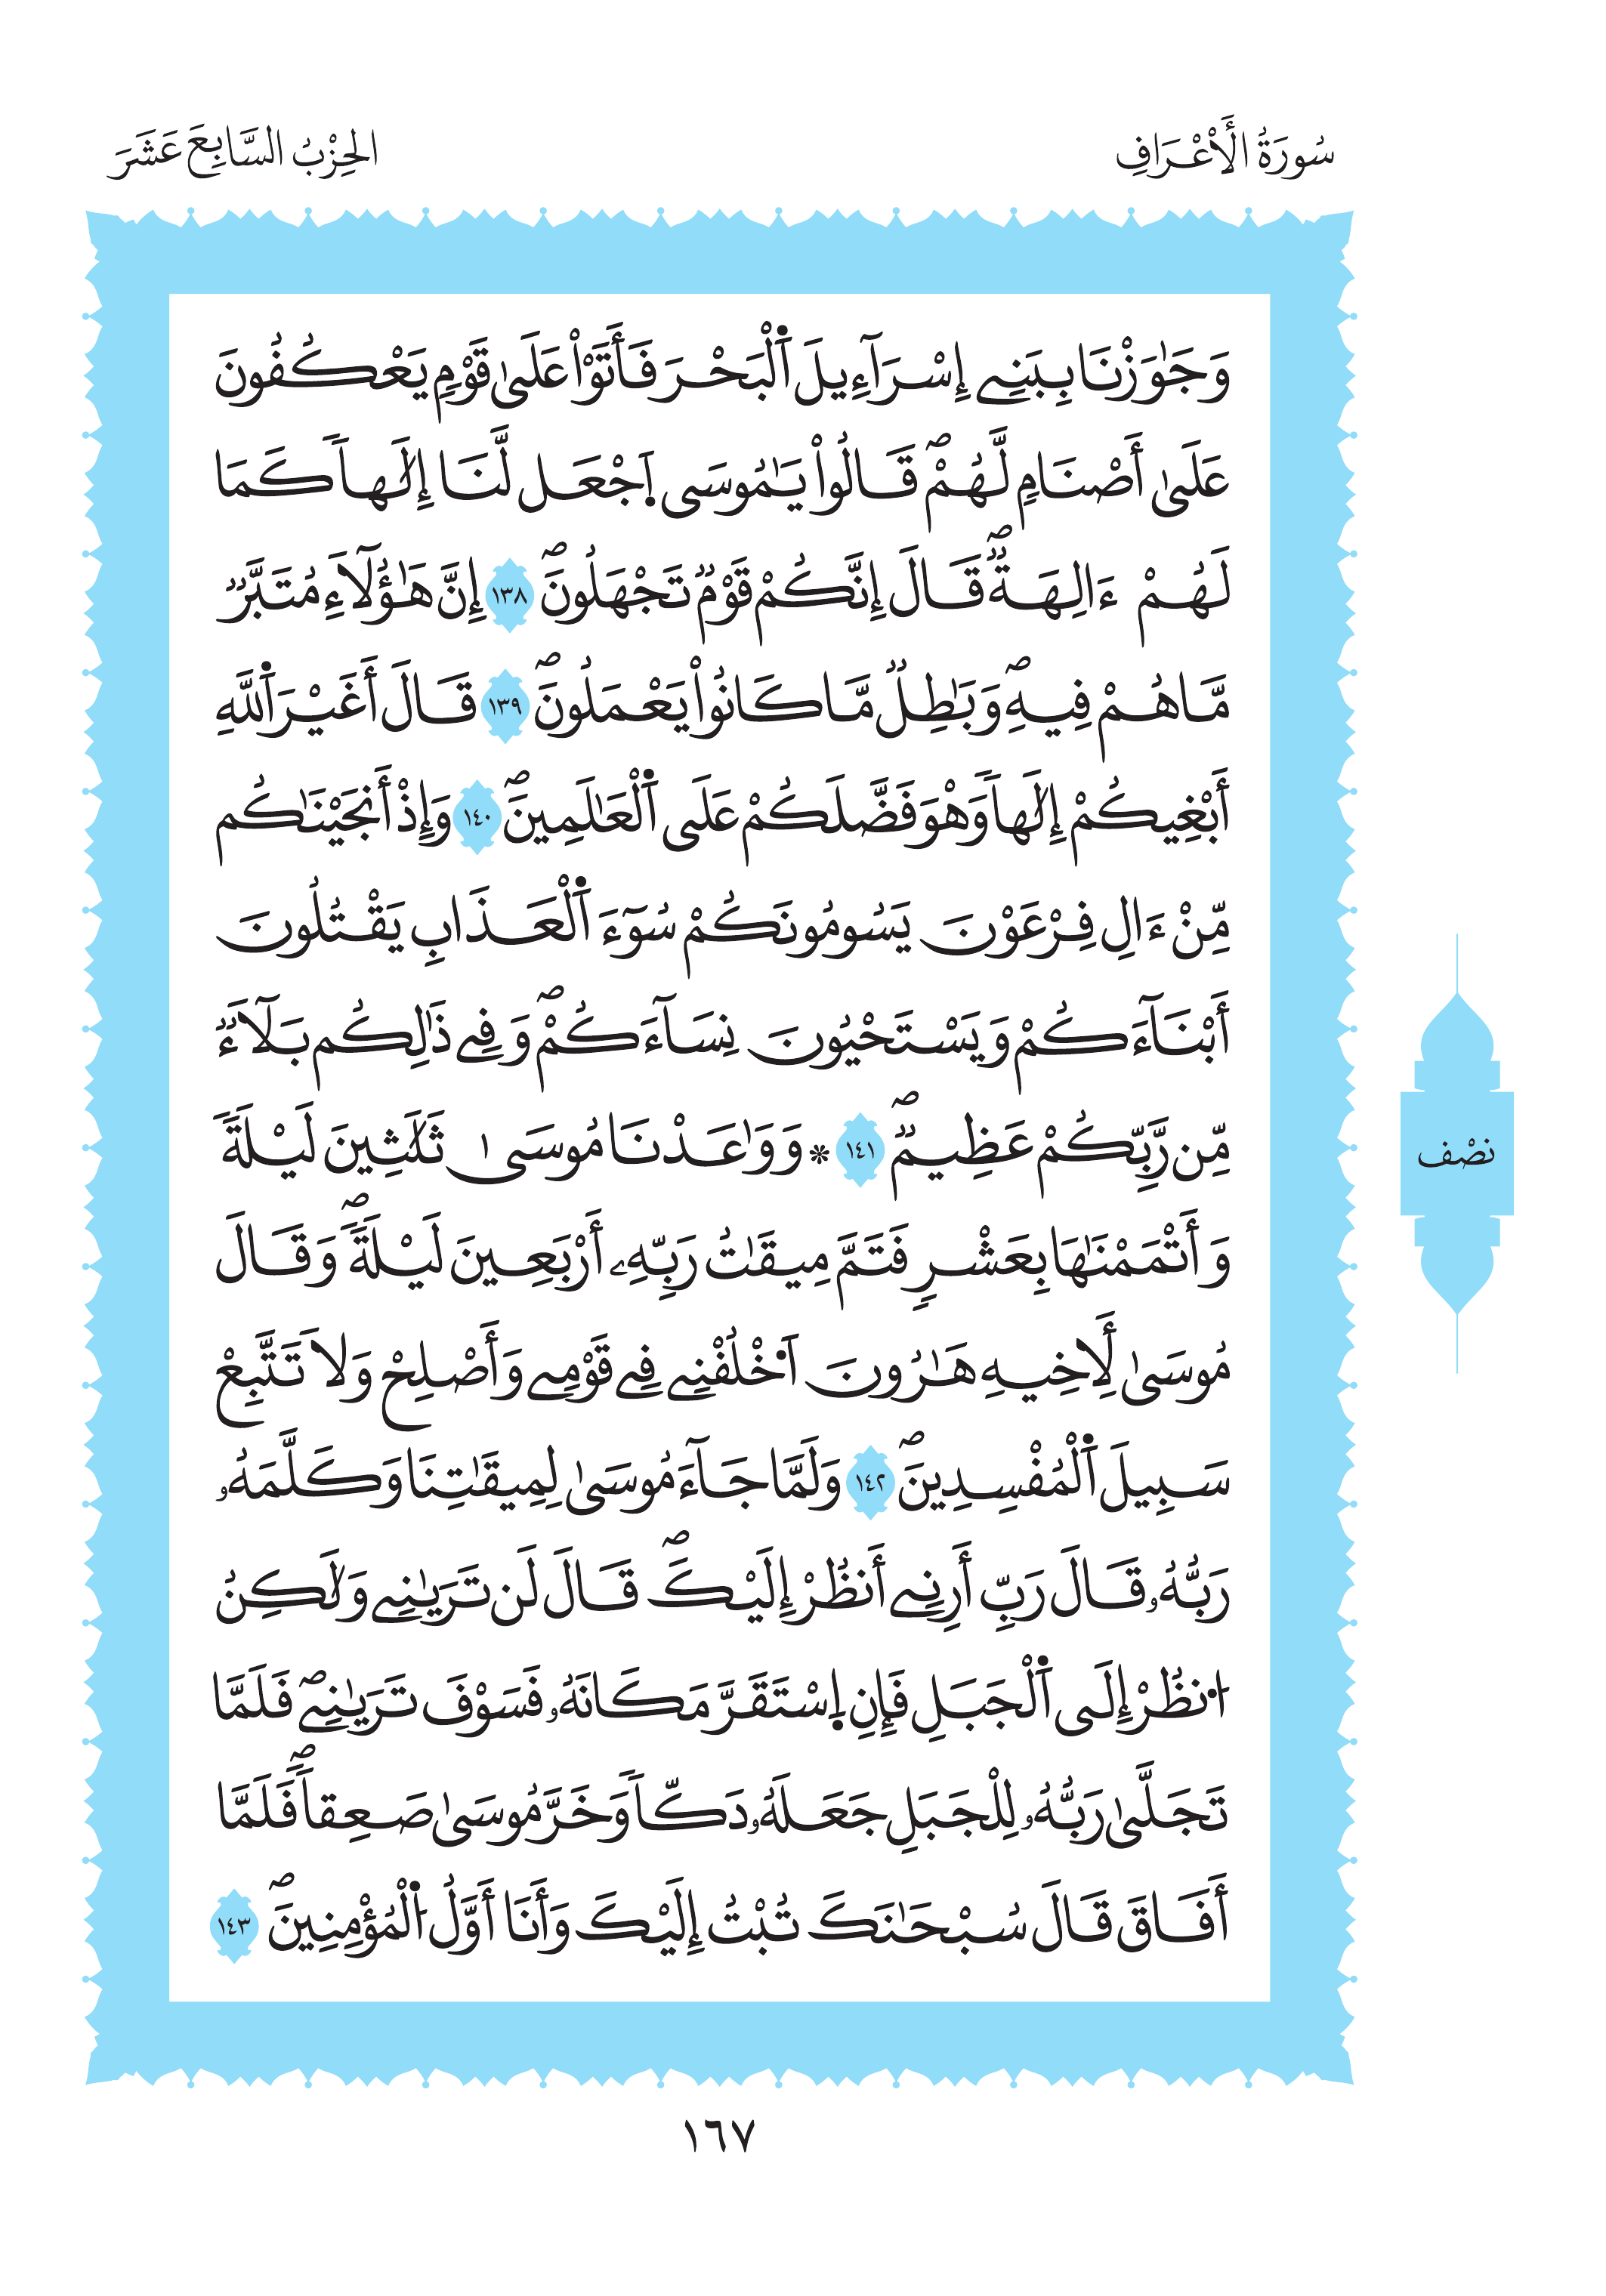 سُورَةُ الْأَعْرَافِ
الحِزْبُ السَّابِعَ عَشَرَ
وَجَٰوَزْنَا بِبَنِے إِسْرَآءِيلَ اَ۬لْبَحْرَ فَأَتَوْاْ عَلَىٰ قَوْمٍ يَعْكُفُونَ
عَلَىٰ أَصْنَامٍ لَّهُمْۖ قَالُواْ يَٰمُوسَى اَ۪جْعَل لَّنَا إِلَٰهاٗ كَمَا
لَهُمْ ءَالِهَةٞۖ قَالَ إِنَّكُمْ قَوْمٞ تَجْهَلُونَۖ ١٣٨ إِنَّ هَٰٓؤُلَآءِ مُتَبَّرٞ
مَّا هُمْ فِيهِۖ وَبَٰطِلٞ مَّا كَانُواْ يَعْمَلُونَۖ ١٣٩ قَالَ أَغَيْرَ اَ۬للَّهِ
أَبْغِيكُمْ إِلَٰهاٗ وَهْوَ فَضَّلَكُمْ عَلَى اَ۬لْعَٰلَمِينَۖ ١٤٠ وَإِذْ أَنجَيْنَٰكُم
مِّنْ ءَالِ فِرْعَوْنَ يَسُومُونَكُمْ سُوٓءَ اَ۬لْعَذَابِ يَقْتُلُونَ
أَبْنَآءَكُمْ وَيَسْتَحْيُونَ نِسَآءَكُمْۖ وَفِے ذَٰلِكُم بَلَآءٞ
مِّن رَّبِّكُمْ عَظِيمٞۖ ١٤١ * وَوَٰعَدْنَا مُوسَىٰ ثَلَٰثِينَ لَيْلَةٗ
وَأَتْمَمْنَٰهَا بِعَشْرٖ فَتَمَّ مِيقَٰتُ رَبِّهِۦ أَرْبَعِينَ لَيْلَةٗۖ وَقَالَ
مُوسَىٰ لِأَخِيهِ هَٰرُونَ اَ۟خْلُفْنِے فِے قَوْمِے وَأَصْلِحْ وَلَا تَتَّبِعْ
سَبِيلَ اَ۬لْمُفْسِدِينَۖ ١٤٢ وَلَمَّا جَآءَ مُوسَىٰ لِمِيقَٰتِنَا وَكَلَّمَهُۥ
رَبُّهُۥ قَالَ رَبِّ أَرِنِے أَنظُرْ إِلَيْكَۖ قَالَ لَن تَرَيٰنِے وَلَٰكِنُ
اُ۟نظُرْ إِلَى اَ۬لْجَبَلِ فَإِنِ اِ۪سْتَقَرَّ مَكَانَهُۥ فَسَوْفَ تَرَيٰنِےۖ فَلَمَّا
تَجَلَّىٰ رَبُّهُۥ لِلْجَبَلِ جَعَلَهُۥ دَكّاٗ وَخَرَّ مُوسَىٰ صَعِقاٗۖ فَلَمَّا
أَفَاقَ قَالَ سُبْحَٰنَكَ تُبْتُ إِلَيْكَ وَأَنَا أَوَّلُ اُ۬لْمُؤْمِنِينَۖ ١٤٣
نصْف
١٦٧